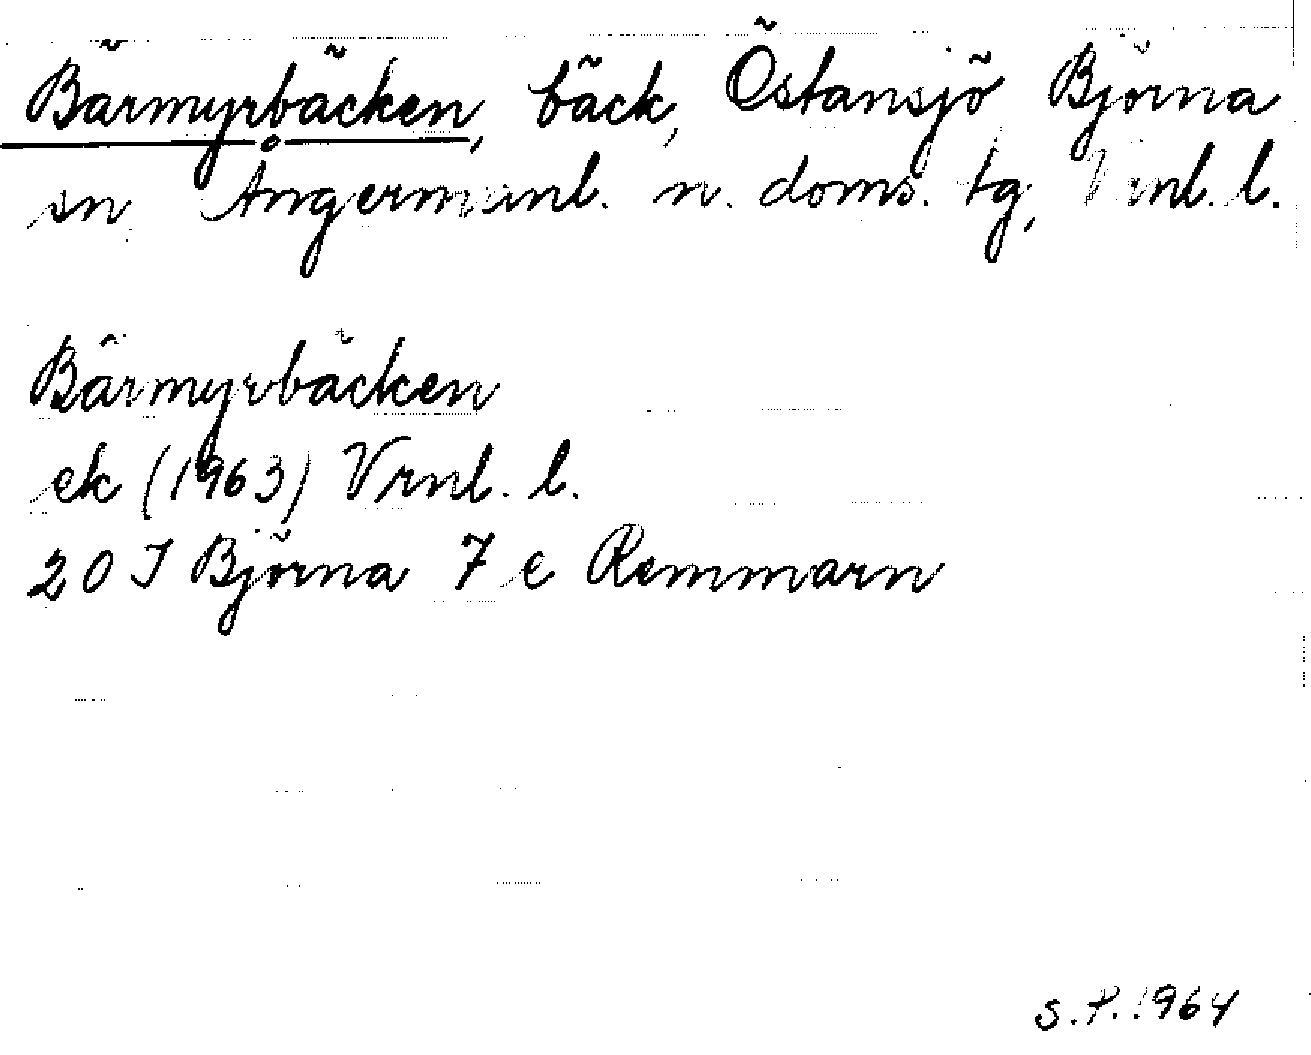 Bärmyrbäcken, bäck, Östansjö Björna
sn, Ångermanl. n. doms. tg, Vrnl. l.
Bärmyrbäcken
ek (1963) Vrnl. l.
20 J Björna 7 e Remmarn
S.P. 1964